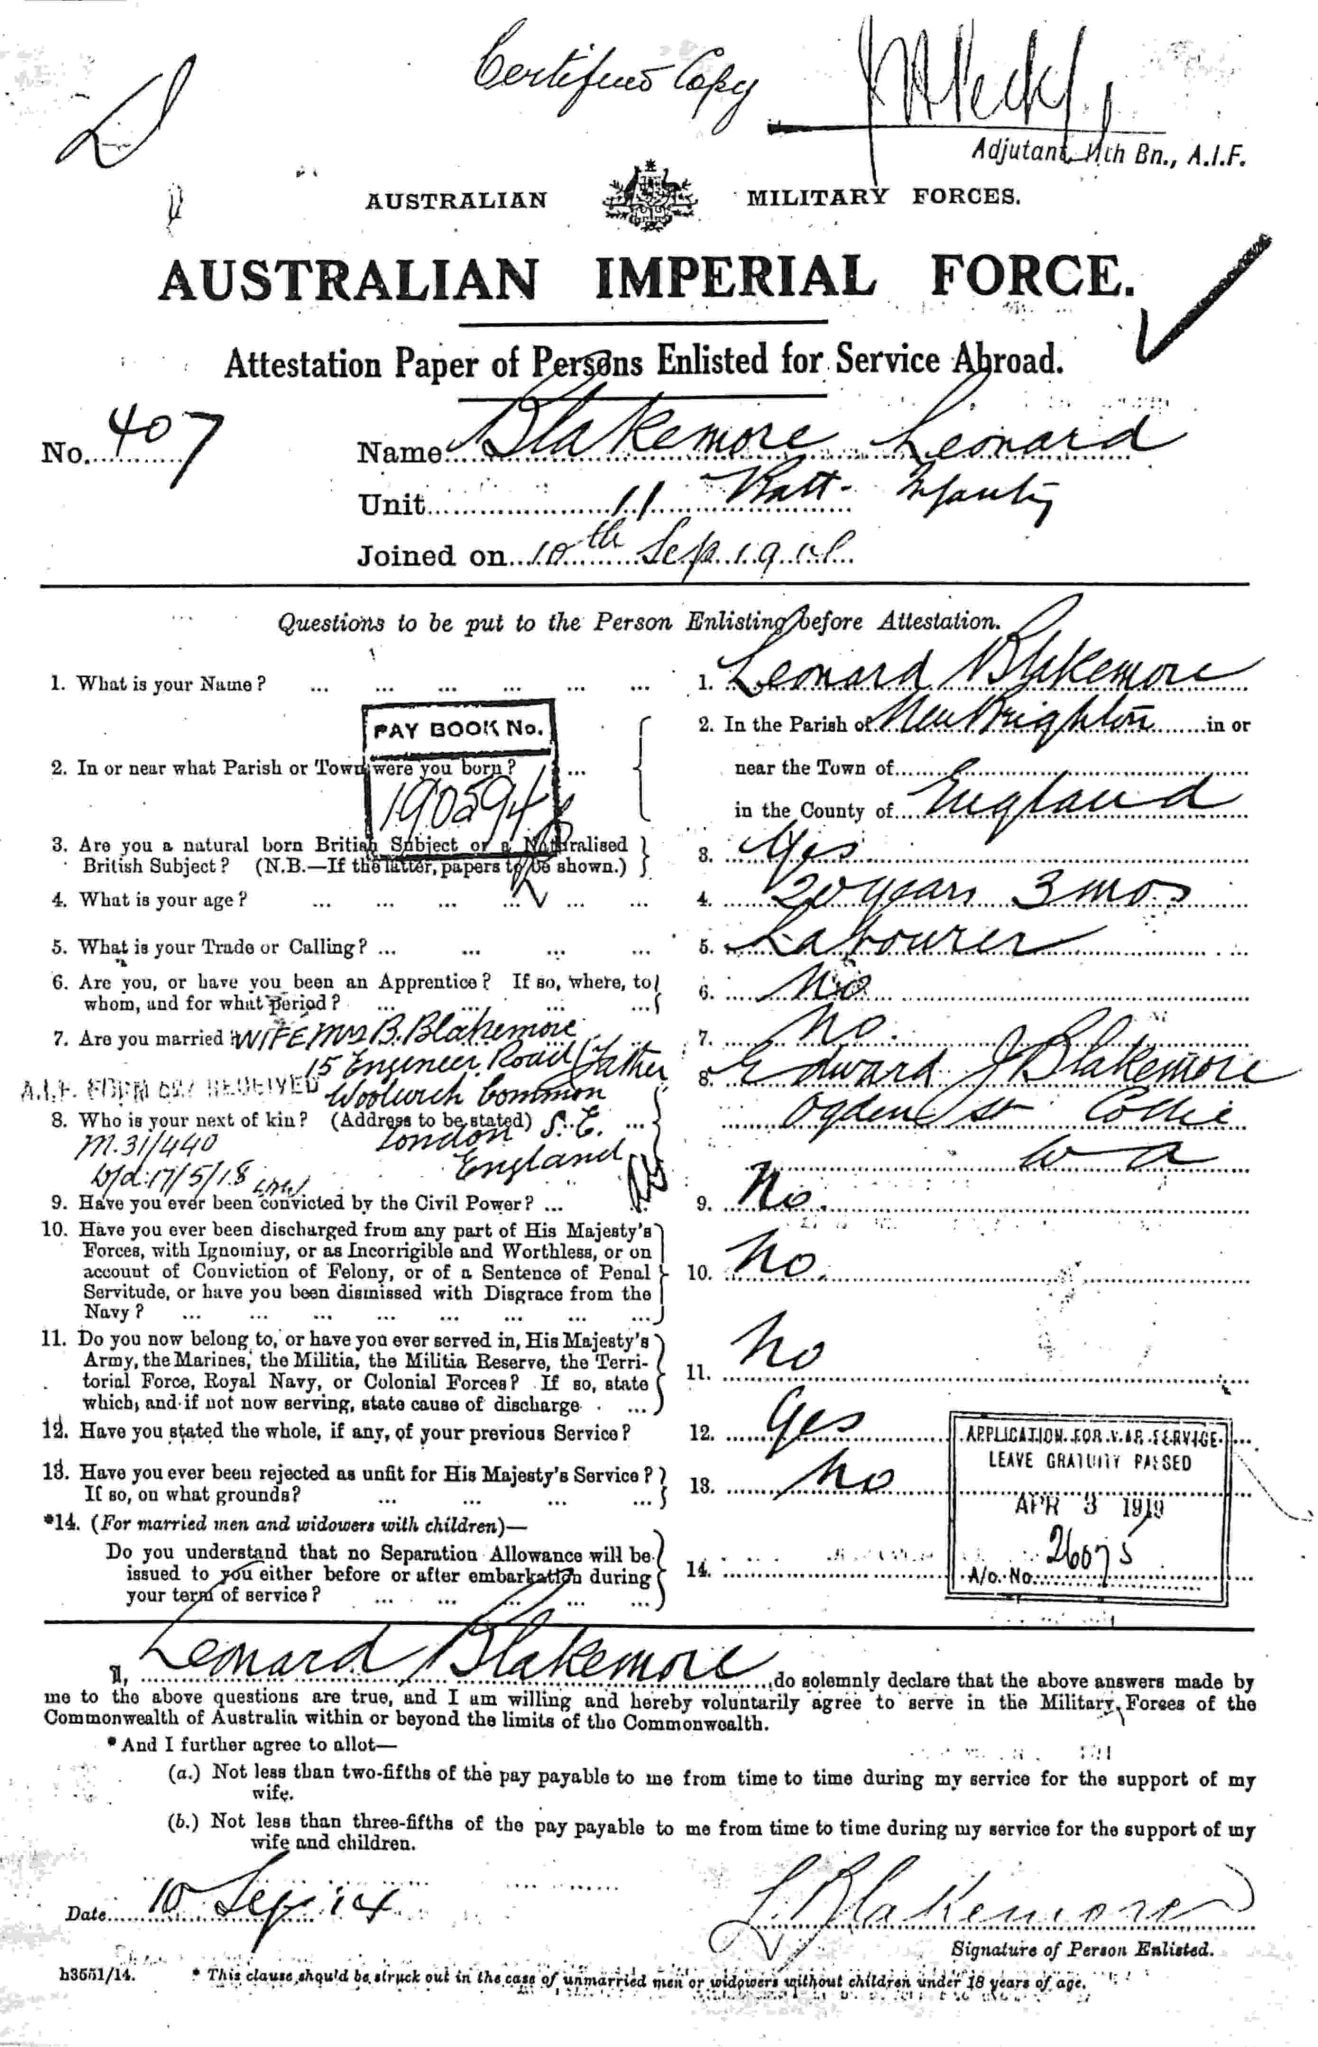 Certified Copy
Adjutant, 11th Bn., A.I.F.
AUSTRALIAN MILITARY FORCES.
AUSTRALIAN IMPERIAL FORCE.
Attestation Paper of Persons Enlisted for Service Abroad.
No. 407 Name Blakemore Leonard
Unit 11 Batt. Infantry
Joined on 10th Sep 191
Questions to be put to the Person Enlisting before Attestation.
1. What is your Name? ... ... ... ... ... ... 1. Leonard Blakemore
PAY BOOK No.
190594
2. In or near what Parish or Town were you born? ... 2. In the Parish of New Brighton in or
near the Town of
in the County of England
3. Are you a natural born British Subject or a Naturalised
British Subject? (N.B.—If the latter, papers to be shown.) 3. Yes
4. What is your age? ... ... ... ... ... ... 4. 20 years 3 mos
5. What is your Trade or Calling? ... ... ... ... 5. Labourer
6. Are you, or have you been an Apprentice? If so, where, to
whom, and for what period? ... ... ... ... 6. No
7. Are you married WIFE Mrs B. Blakemore 7. No.
15 Engineer Road Father 8. Edward J Blakemore
A.I.F. FORM RECEIVED Woolwich Common Ogden St Collie
8. Who is your next of kin? (Address to be stated) ...
London S.E.
M.31/440 England W A
d/d 17/5/18
9. Have you ever been convicted by the Civil Power? ... 9. No.
10. Have you ever been discharged from any part of His Majesty's
Forces, with Ignominy, or as Incorrigible and Worthless, or on
account of Conviction of Felony, or of a Sentence of Penal 10. No.
Servitude, or have you been dismissed with Disgrace from the
Navy? ... ... ... ... ... ... ... ...
11. Do you now belong to, or have you ever served in, His Majesty's
Army, the Marines, the Militia, the Militia Reserve, the Terri-
torial Force, Royal Navy, or Colonial Forces? If so, state 11. No
which, and if not now serving, state cause of discharge ...
12. Have you stated the whole, if any, of your previous Service? 12. Yes
13. Have you ever been rejected as unfit for His Majesty's Service? 13. No
If so, on what grounds? ... ... ... ...
APPLICATION FOR WAR SERVICE
LEAVE GRATUITY PASSED
APR 3 1919
A/c. No. 26075
*14. (For married men and widowers with children)—
Do you understand that no Separation Allowance will be
issued to you either before or after embarkation during 14.
your term of service? ... ... ... ... ...
I, Leonard Blakemore do solemnly declare that the above answers made by
me to the above questions are true, and I am willing and hereby voluntarily agree to serve in the Military Forces of the
Commonwealth of Australia within or beyond the limits of the Commonwealth.
*And I further agree to allot—
(a.) Not less than two-fifths of the pay payable to me from time to time during my service for the support of my
wife.
(b.) Not less than three-fifths of the pay payable to me from time to time during my service for the support of my
wife and children.
Date 10 Sep 14 L. Blakemore
Signature of Person Enlisted.
h3551/14. * This clause should be struck out in the case of unmarried men or widowers without children under 18 years of age.